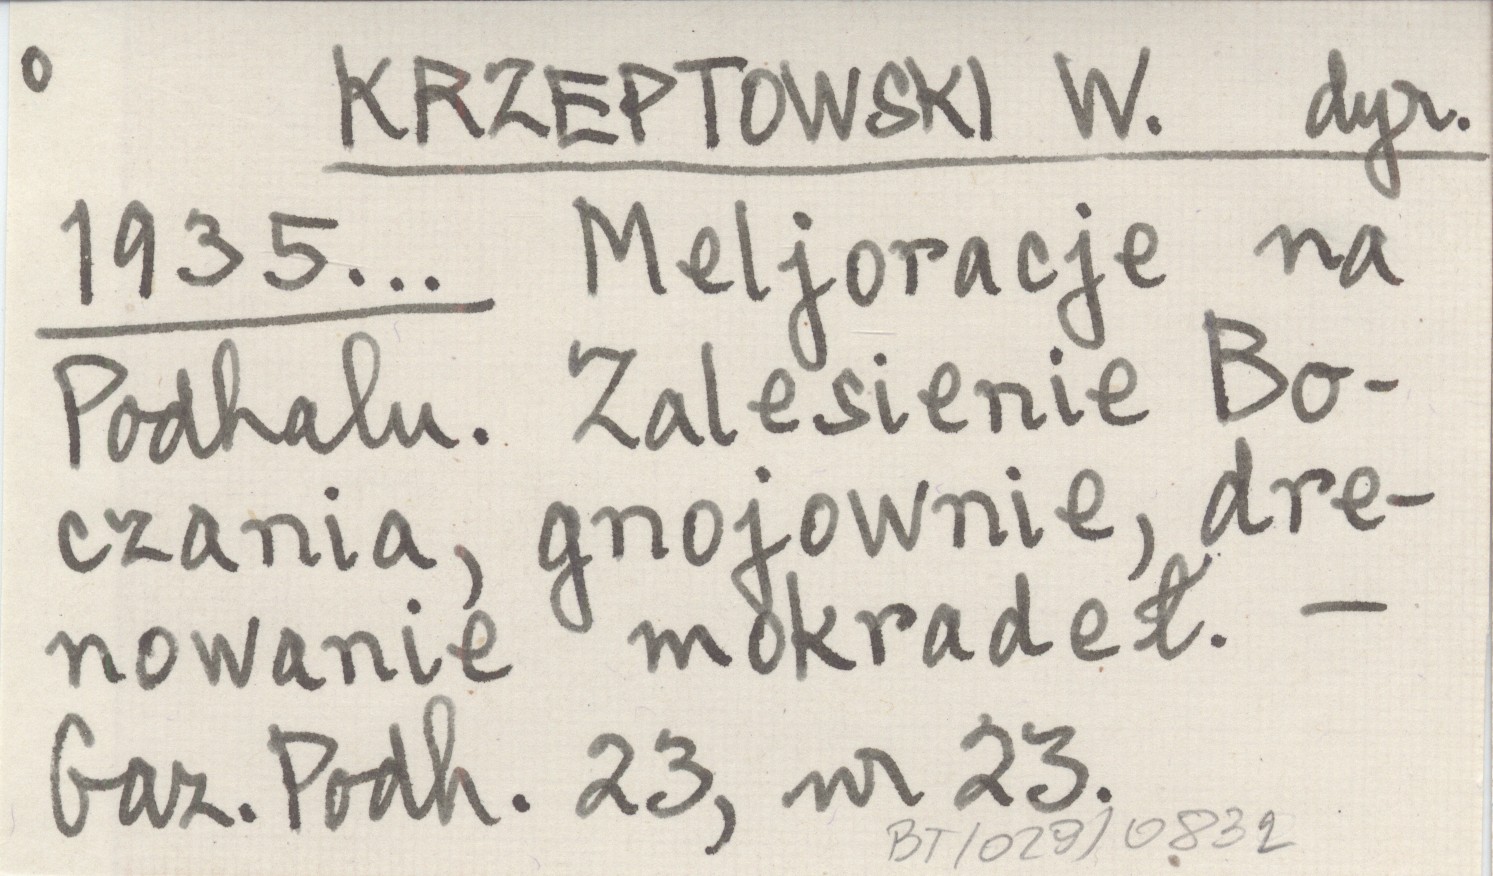 o KRZEPTOWSKI W. dyr.
1935... Meljoracje na
Podhalu. Zalesienie Bo-
czania, gnojownie, dre-
nowanie mokradeł. —
Gaz. Podh. 23, nr 23.
BT/029/0832